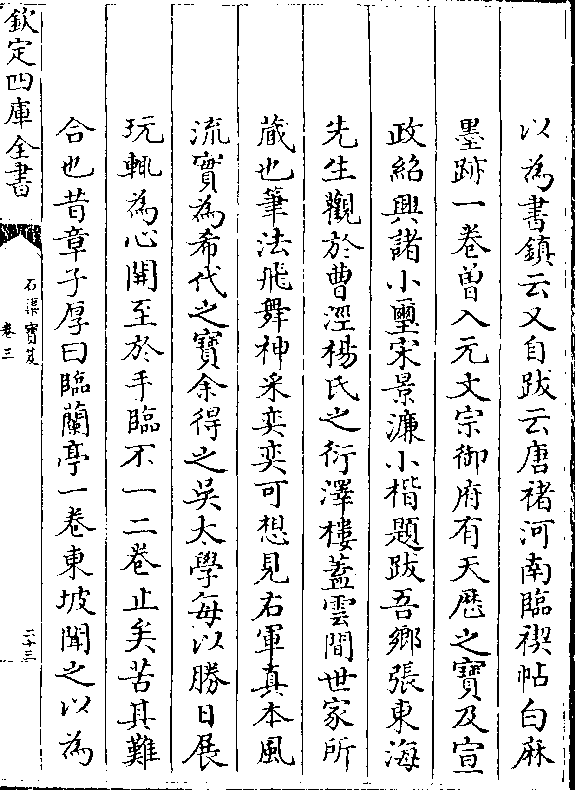 以為書鎮云又自跋云唐禇河南臨禊帖白麻
墨跡一卷曽入元文宗御府有天厯之寶及宣
政紹興諸小璽宋景濂小楷題跋吾鄉張東海
先生觀於曹涇楊氏之衍澤樓蓋雲間世家所
蔵也筆法飛舞神采奕奕可想見右軍真本風
流實為希代之寶余得之吳太學每以勝日展
玩輒為心開至於手臨不一二卷止矣苦其難
合也昔章子厚曰臨蘭亭一卷東坡聞之以為
欽定四庫全書
石渠寶笈
卷三
二十三